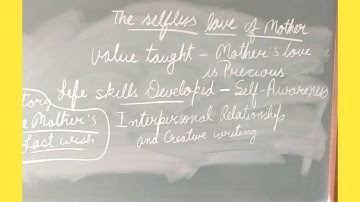 The selfless love of Mother
Value taught - Mother's love
is Precious.
Life skills Developed - Self-Awareness
Interpersonal Relationship
and Creative writing
tory
Mother's
Last wish